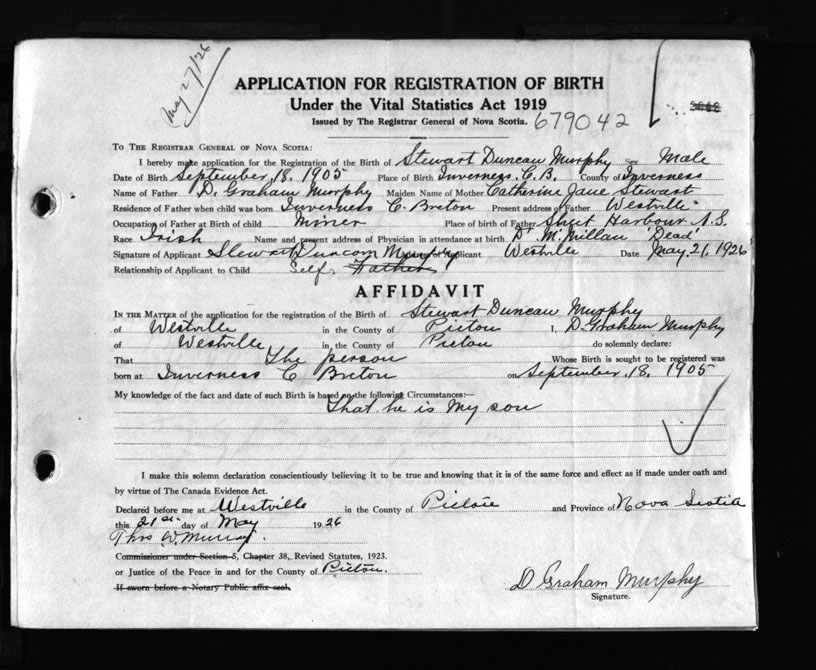 May 27/26
APPLICATION FOR REGISTRATION OF BIRTH
Under the Vital Statistics Act 1919
Issued by The Registrar General of Nova Scotia. 679042
TO THE REGISTRAR GENERAL OF NOVA SCOTIA:
I hereby make application for the Registration of the Birth of Stewart Duncan Murphy Sex Male
Date of Birth September, 18, 1905 Place of Birth Inverness C.B. County of Inverness
Name of Father D. Graham Murphy Maiden Name of Mother Catherine Jane Stewart
Residence of Father when child was born Inverness C. Breton Present address of Father Westville
Occupation of Father at Birth of child Miner Place of Birth of Father Harbour N.S.
Race Irish Name and present address of Physician in attendance at birth Dr McMillan 'Dead'
Signature of Applicant Stewart Duncan Murphy Applicant Westville Date May, 21, 1926
Relationship of Applicant to Child Self. Father
AFFIDAVIT
IN THE MATTER of the application for the registration of the Birth of Stewart Duncan Murphy
of Westville in the County of Pictou I, D. Graham Murphy
of Westville in the County of Pictou do solemnly declare:
That The person Whose Birth is sought to be registered was
born at Inverness C. Breton on September, 18, 1905
My knowledge of the fact and date of such Birth is based on the following Circumstances:—
That he is My son
I make this solemn declaration conscientiously believing it to be true and knowing that it is of the same force and effect as if made under oath and
by virtue of The Canada Evidence Act.
Declared before me at Westville in the County of Pictou and Province of Nova Scotia
this 21st day of May 1926
Thos W. Murray.
Commissioner under Section 5, Chapter 38, Revised Statutes, 1923.
or Justice of the Peace in and for the County of Pictou.
If sworn before a Notary Public affix seal.
D Graham Murphy
Signature.